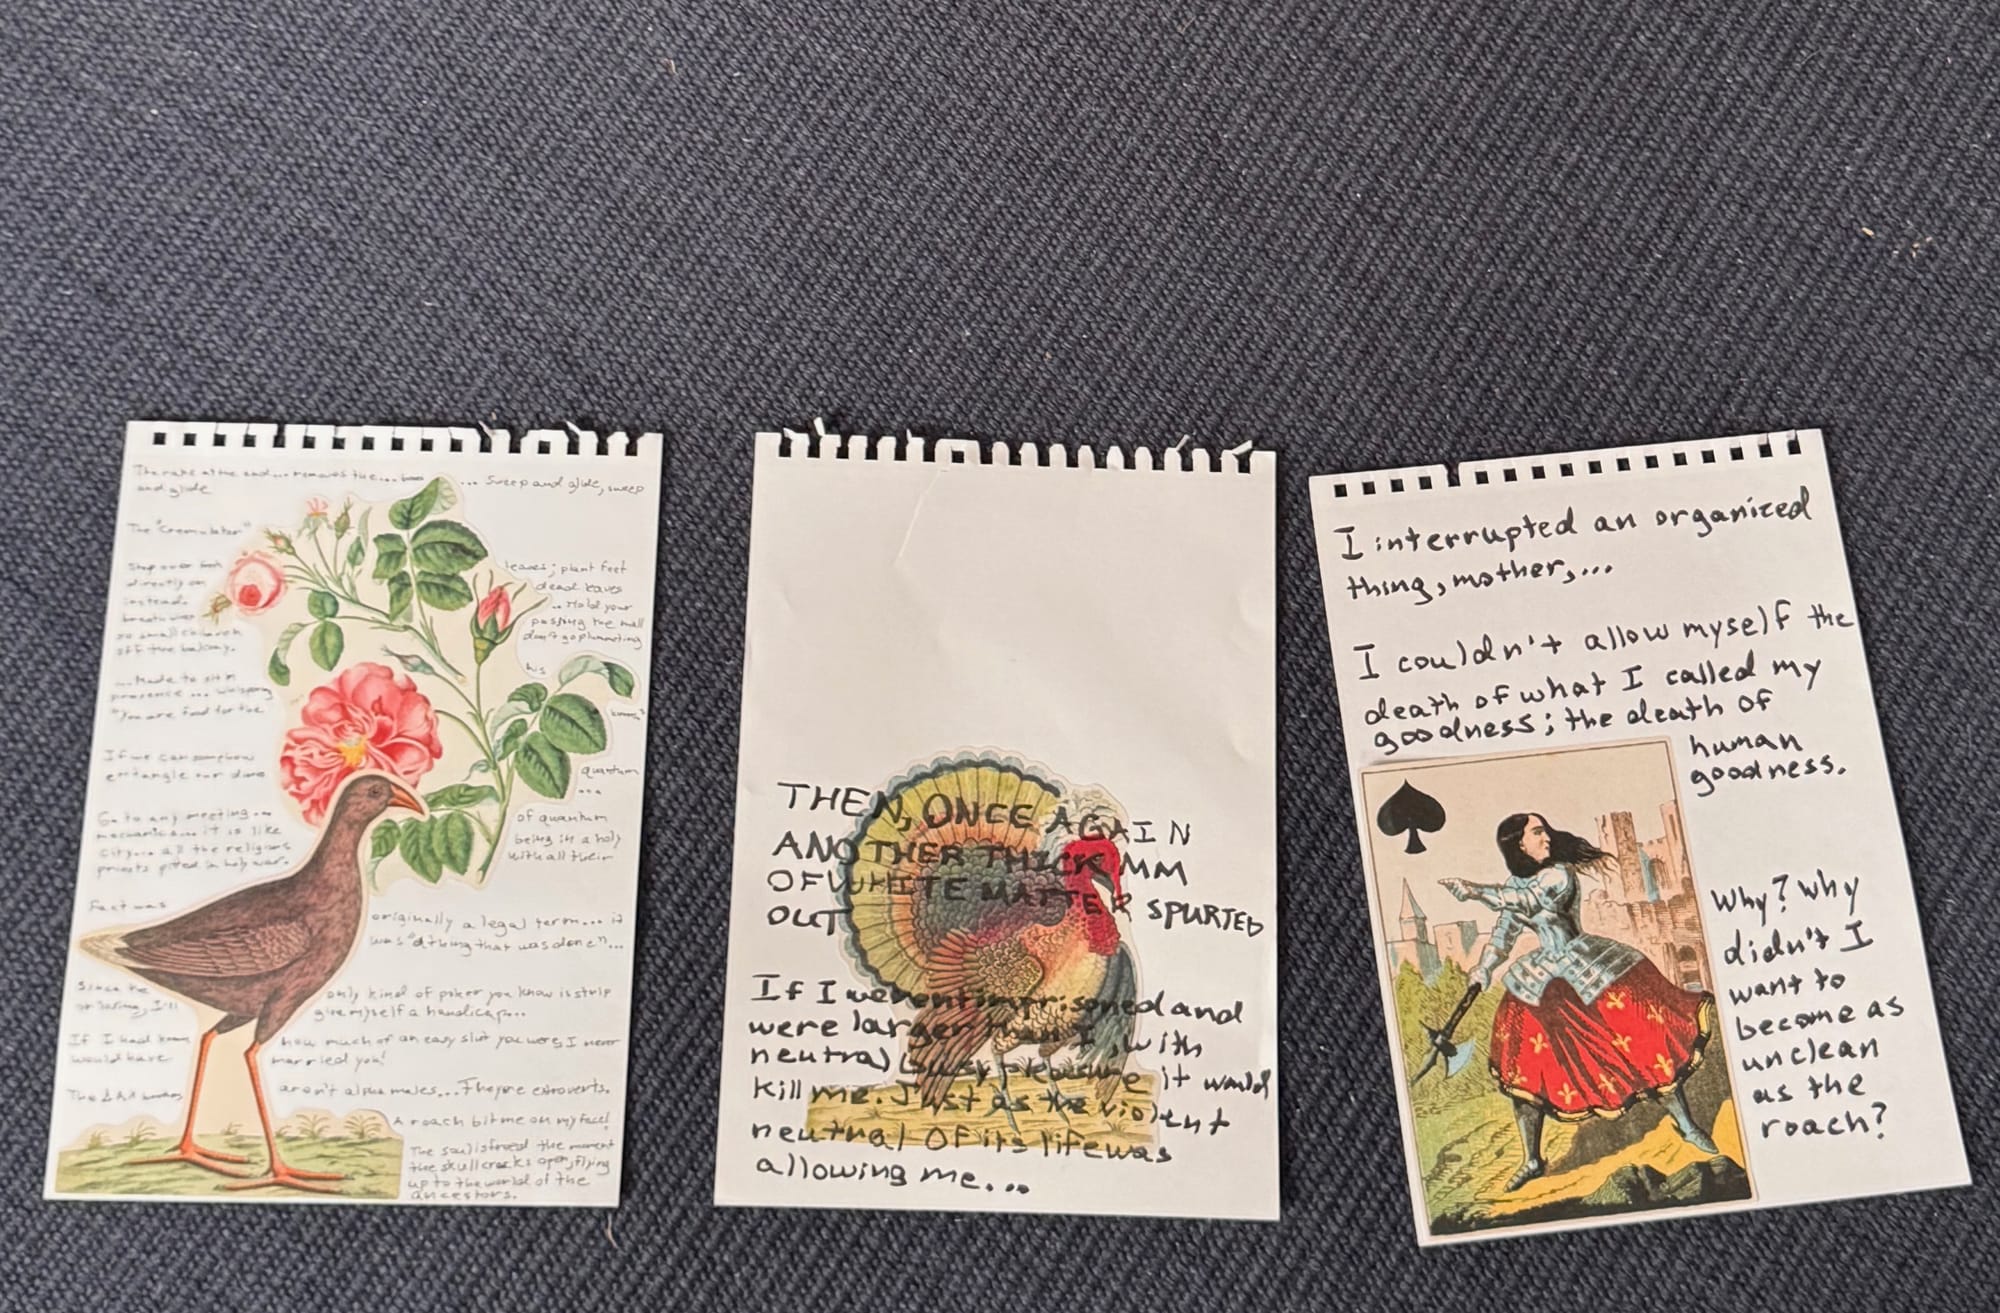 The rake at the end... removes the... ... Sweep and glide, sweep
and glide
The "Cremulator"
Step over leaves; plant feet
directly on dead leaves
instead. ... Hold your
breath passing the mall
so small children don't go plummeting
off the balcony.
... Made to sit in his
presence... whispering
"You are food for the
If we can somehow quantum
entangle our ...
Go to any meeting... of quantum
mechanics... it is like being in a holy
city... all the religions with all their
priests pitted in holy war.
Fact was originally a legal term... it
was "a thing that was done"...
Since the only kind of poker you know is strip
I'll give myself a handicap...
If I had known how much of an easy slut you were, I never
would have married you!
The aren't alpha males... They're extroverts.
A roach bit me on my face!
The soul is freed the moment
the skull cracks open, flying
up to the world of the
ancestors.
THEN, ONCE AGAIN
ANOTHER THICK MM
OF WHITE MATTER SPURTED
OUT
If I weren't imprisoned and
were larger than I, with
neutral busy pleasure it would
kill me. Just as the violent
neutral of its life was
allowing me...
I interrupted an organized
thing, mother,...
I couldn't allow myself the
death of what I called my
goodness; the death of
human
goodness.
Why? Why
didn't I
want to
become as
unclean
as the
roach?